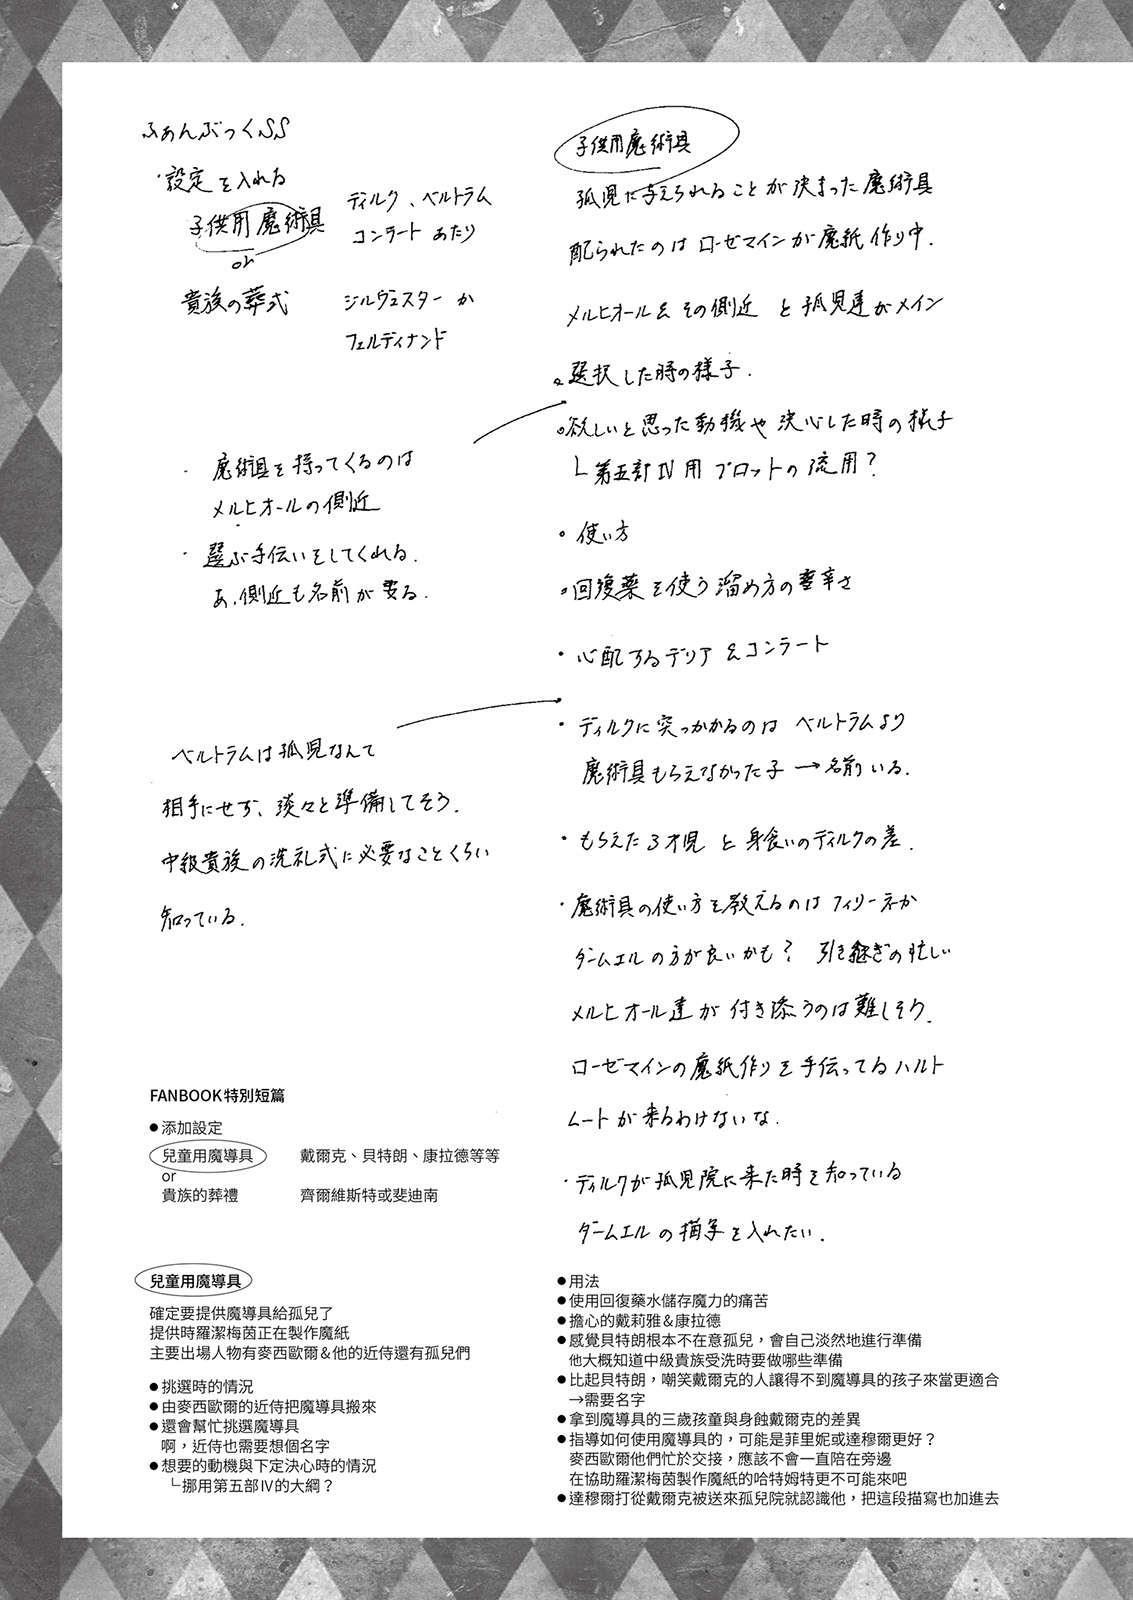 ふぁんぶっくSS
・設定を入れる
子供用魔術具
or
貴族の葬式
ディルク、ベルトラム
コンラートあたり
ジルヴェスターか
フェルディナンド
・魔術具を持ってくるのは
メルヒオールの側近
・選ぶ手伝いをしてくれる.
あ、側近も名前が要る.
ベルトラムは孤児なんて
相手にせず、淡々と準備してそう.
中級貴族の洗礼式に必要なことくらい
知っている.
子供用魔術具
孤児に与えられることが決まった魔術具
配られたのはローゼマインが魔紙作り中.
メルヒオール&その側近と孤児達がメイン
。選択した時の様子.
。欲しいと思った動機や決心した時の様子
└第五部Ⅳ用プロットの流用?
。使い方
。回復薬を使う溜め方の辛さ
・心配するデリア&コンラート
・ディルクに突っかかるのはベルトラムより
魔術具もらえなかった子→名前いる.
・もらえた3才児と身食いのディルクの差.
・魔術具の使い方を教えるのはフィリーネか
ダームエルの方が良いかも? 引き継ぎの忙しい
メルヒオール達が付き添うのは難しそう.
ローゼマインの魔紙作りを手伝ってるハルト
ムートが来るわけないな.
・ディルクが孤児院に来た時を知っている
ダームエルの描写を入れたい.
FANBOOK特別短篇
●添加設定
兒童用魔導具 戴爾克、貝特朗、康拉德等等
or
貴族的葬禮 齊爾維斯特或斐迪南
兒童用魔導具
確定要提供魔導具給孤兒了
提供時羅潔梅茵正在製作魔紙
主要出場人物有麥西歐爾&他的近侍還有孤兒們
●挑選時的情況
●由麥西歐爾的近侍把魔導具搬來
●還會幫忙挑選魔導具
啊，近侍也需要想個名字
●想要的動機與下定決心時的情況
└挪用第五部Ⅳ的大綱？
●用法
●使用回復藥水儲存魔力的痛苦
●擔心的戴莉雅&康拉德
●感覺貝特朗根本不在意孤兒，會自己淡然地進行準備
他大概知道中級貴族受洗時要做哪些準備
●比起貝特朗，嘲笑戴爾克的人讓得不到魔導具的孩子來當更適合
→需要名字
●拿到魔導具的三歲孩童與身蝕戴爾克的差異
●指導如何使用魔導具的，可能是菲里妮或達穆爾更好？
麥西歐爾他們忙於交接，應該不會一直陪在旁邊
在協助羅潔梅茵製作魔紙的哈特姆特更不可能來吧
●達穆爾打從戴爾克被送來孤兒院就認識他，把這段描寫也加進去